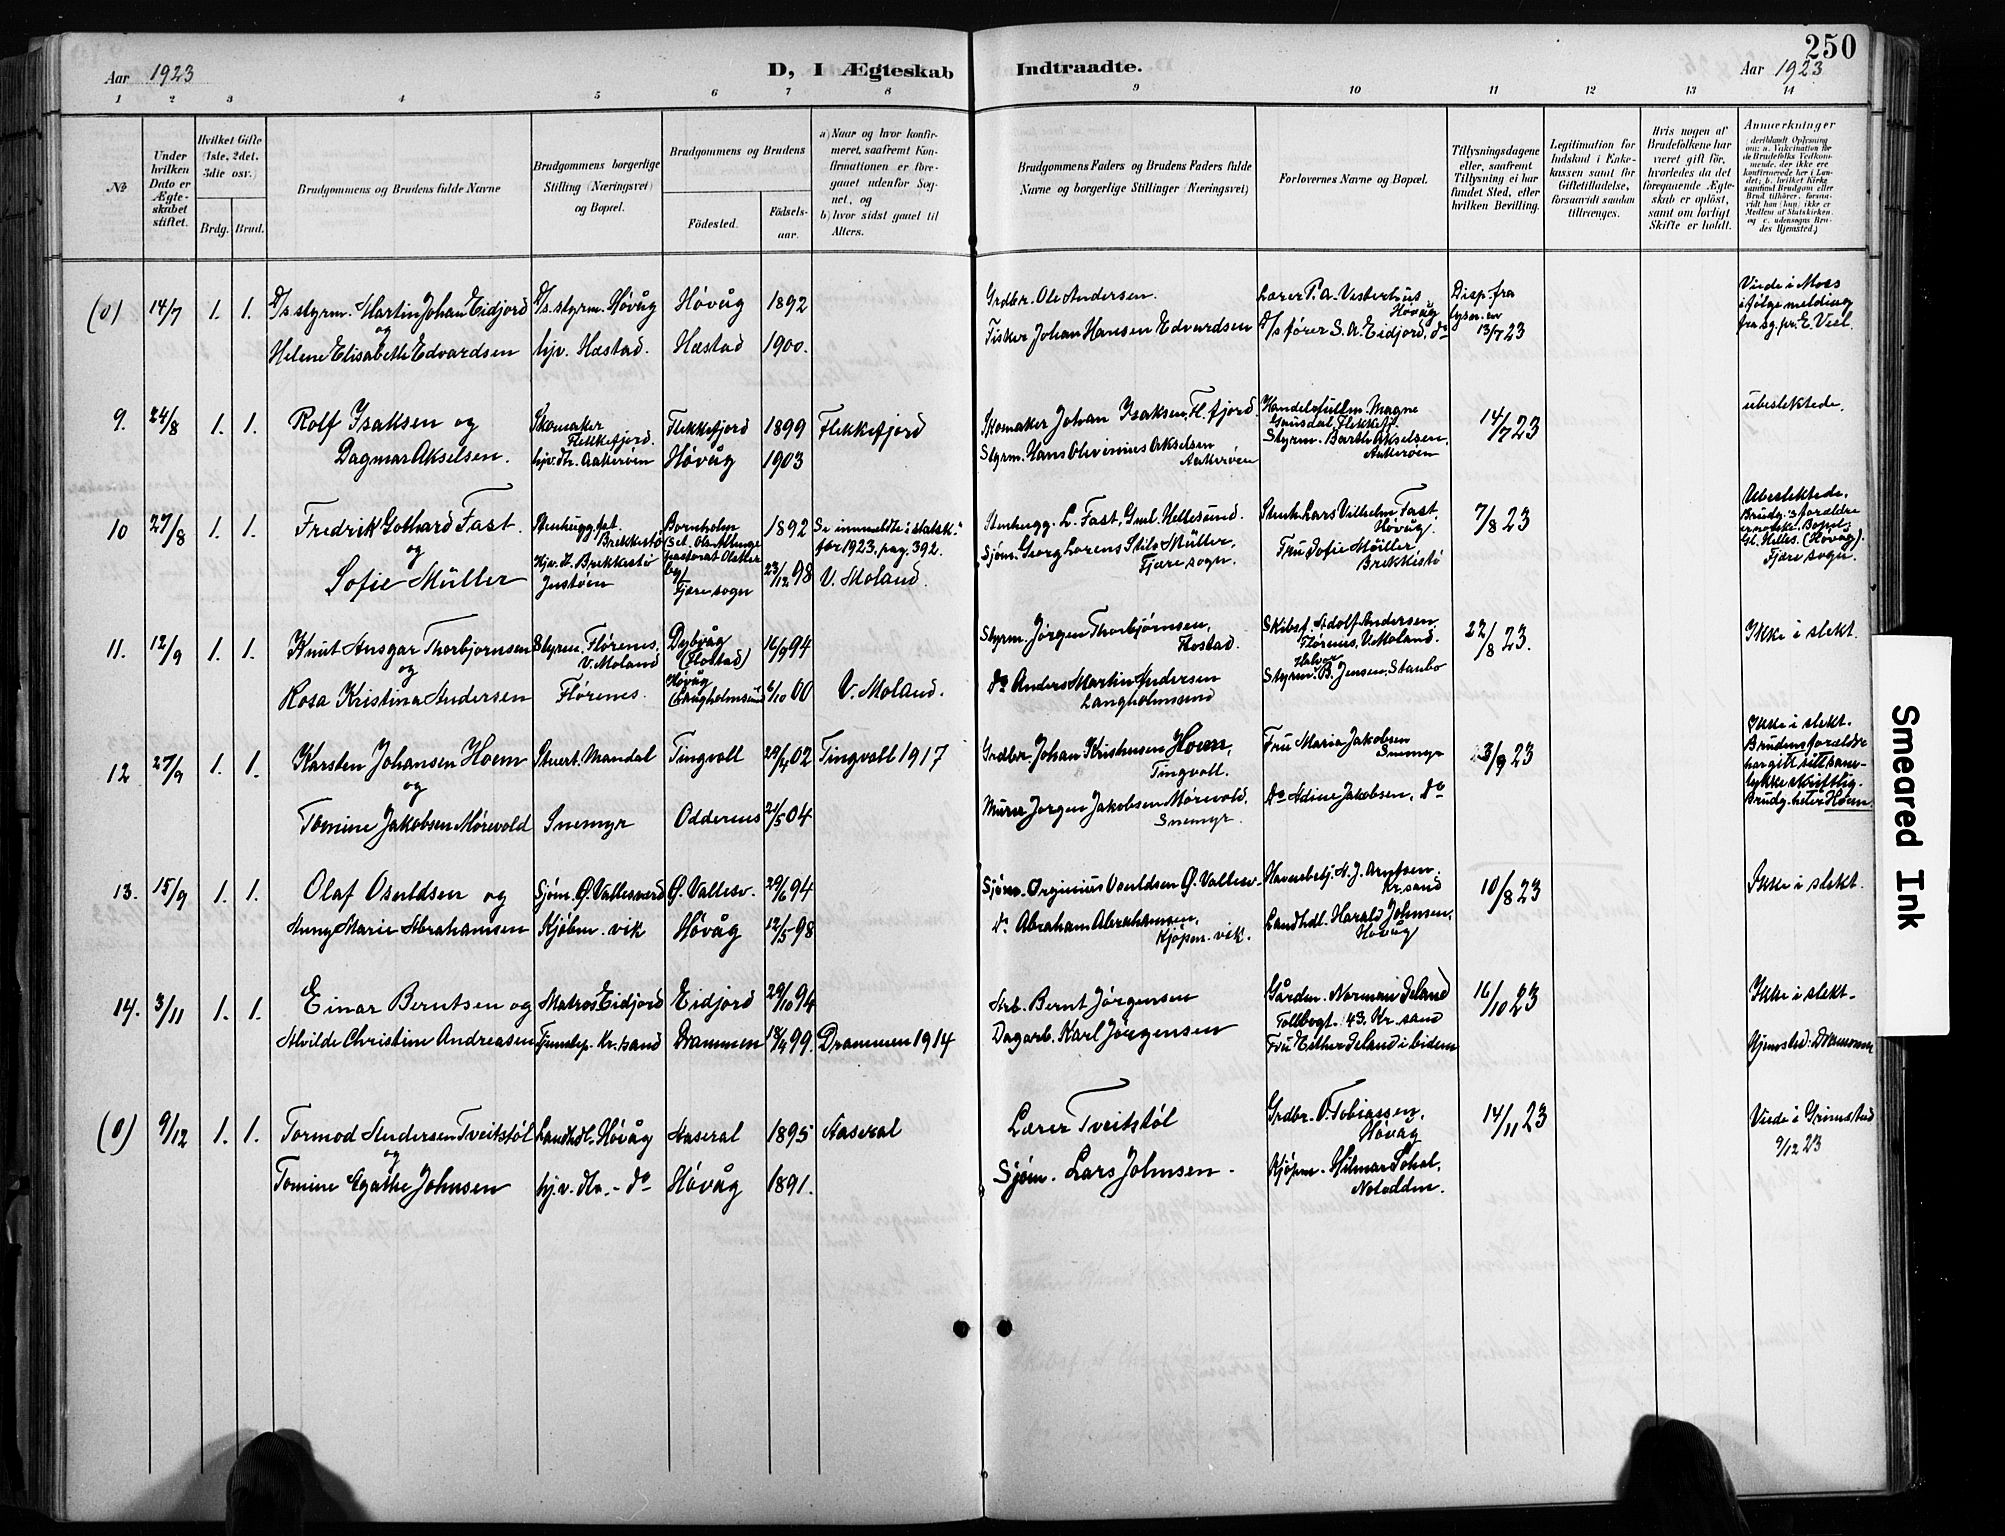 250
Aar 1923
D, I Ægteskab Indtraadte.
Aar 1923
1 2 3 4 5 6 7 8 9 10 11 12 13 14
No
Under hvilken Dato er Ægteskabet stiftet.
Hvilket Gifte (1ste, 2det, 3die osv.)
Brdg. Brud.
Brudgommens og Brudens fulde Navne
Brudgommens borgerlige Stilling (Næringsvei) og Bopæl.
Brudgommens og Brudens
Födested.
Födselsaar.
a) Naar og hvor konfirmeret, saafremt Konfirmationen er foregaaet udenfor Sognet, og
b) hvor sidst gaaet til Alters.
Brudgommens Faders og Brudens Faders fulde Navne og borgerlige Stillinger (Næringsvei)
Forlovernes Navne og Bopæl.
Tillysningsdagene eller, saafremt Tillysning ei har fundet Sted, efter hvilken Bevilling.
Legitimation for Indskud i Enkekassen samt for Giftetilladelse, forsaavidt saadan tiltrænges.
Hvis nogen af Brudefolkene har været gift för, hvorledes da det foregaaende Ægteskab er oplöst, samt om lovligt Skifte er holdt.
Anmærkninger
(deriblandt Oplysning om: a. Vakcination for de Brudefolks Vedkommende, der ikke ere konfirmerede her i Landet; b. hvilket Kirkesamfund Brudgom eller Brud tilhörer, forsaavidt han (hun) ikke er Medlem af Statskirken, og c. udensogns Brudes Hjemsted.)
(0) 14/7 1. 1. D/s styrm. Martin Johan Eidjord D/s. styrm. Høvåg Høvåg 1892 Grdbr. Ole Andersen. Lærer P. A. Vesterhus Høvåg Disp. fra lysn. en Viede i Moss
og ifølge melding
Helene Elisabeth Edvardsen hjv. Hæstad. Hæstad 1900. Fisker Johan Hansen Edvardsen D/s fører S. A. Eidjord, do 13/7 23 fra sg. pr. E. Veel.
9. 24/8 1. 1. Rolf Isaksen og Skomaker Flekkefjord. Flekkefjord 1899 Flekkefjord Skomaker Johan Isaksen, Fl.fjord. Handelsfullm. Magne Gausdal Flekkefj. 14/7 23 ubeslektede.
Dagmar Akselsen. hjv. Th. Aakerøen Høvåg 1903 Styrm. Hans Olivinius Akselsen Aakerøen Styrm. Barth Akselsen, Aakerøen
10 27/8 1. 1. Fredrik Gothard Fast. Brekkestø Bornholm 1892 Se innmeldte i statsk. før 1923, pag. 392. Stenhugg. L. Fast, Gml. Hellesund. Stenh. Lars Vilhelm Fast, Høvåg. 7/8 23 Ubeslektede.
og Brudg.s forældre er norske. Bopæl:
Sofie Müller Hjv. H. Brekkestø Justøen Fjære sogn 23/12 98 V. Moland. Sjøm. Georg Lorens Müller, Fjære sogn. Fru Sofie Müller Brekkestø Gl. Helles. (Høvåg). Fjære sogn.
11. 12/9 1. 1. Knut Ansgar Thorbjørnsen Styrm. Flørenes, V. Moland Dybvåg (Flostad) 16/9 94 Styrm. Jørgen Thorbjørnsen, Flostad. Skibsf. Adolf Andersen, Flørenes V. Moland. 22/8 23. Ikke i slekt.
og
Rosa Kristina Andersen Flørenes. Høvåg (Langholmsund) 6/10 00 V. Moland. do Anders Martin Andersen Langholmsund Halvor Styrm. B. Jensen, Stanbo
12 27/9 1. 1. Karsten Johansen Hoem Stuert. Mandal Tingvoll 29/4 02 Tingvoll 1917 Grdbr. Johan Kristensen Hoem, Tingvoll. Fru Maria Jakobsen Snemyr 3/9 23 Ikke i slekt.
og Brudens forældre har gitt sitt samtykke skriftlig.
Tomine Jakobsen Mørevold Snemyr Oddernes 21/5 04 Murer Jørgen Jakobsen Mørevold, Snemyr. do Adine Jakobsen, do Brudg. heter Hoem
13. 15/9 1. 1. Olaf Osuldsen og Sjøm. Ø. Vallesværd Ø. Vallesv. 29/6 94 Sjøm. Osuldsen Ø. Vallesv. Havnebetj. A. J. Arntsen, Kr.sand 10/8 23 Ikke i slekt.
Anny Marie Abrahamsen Kjøbm. vik Høvåg 12/5 98 do Abraham Abrahamsen, Kjøpm. vik. Landhdl. Harald Johnsen, Høvåg
14. 3/11 1. 1. Einar Berntsen og Matros Eidjord Eidjord 29/10 94 Arb. Bernt Jørgensen Gården. Norman Iseland Tollbogt. 43, Kr. sand 16/10 23 Ikke i slekt.
Alvilde Christine Andreasen Tjenestep. Kr.sand Drammen 18/4 99. Drammen 1914 Dagarb. Karl Jørgensen Fru Esther Iseland ibidem Hjemsted: Drammen
(0) 9/12 1. 1. Tormod Andersen Tveitstøl Landhdl. Høvåg Aaseral 1895 Aaseral Lærer Tveitstøl Grdbr. O. Tobiassen, Høvåg 14/11 23 Viede i Grimstad
og 9/12 23
Tomine Egathe Johnsen hj. v. Hv. - do Høvåg 1891. Sjøm. Lars Johnsen. Kjøpm. Hilmar Johnl, Notodden.
Smeared Ink